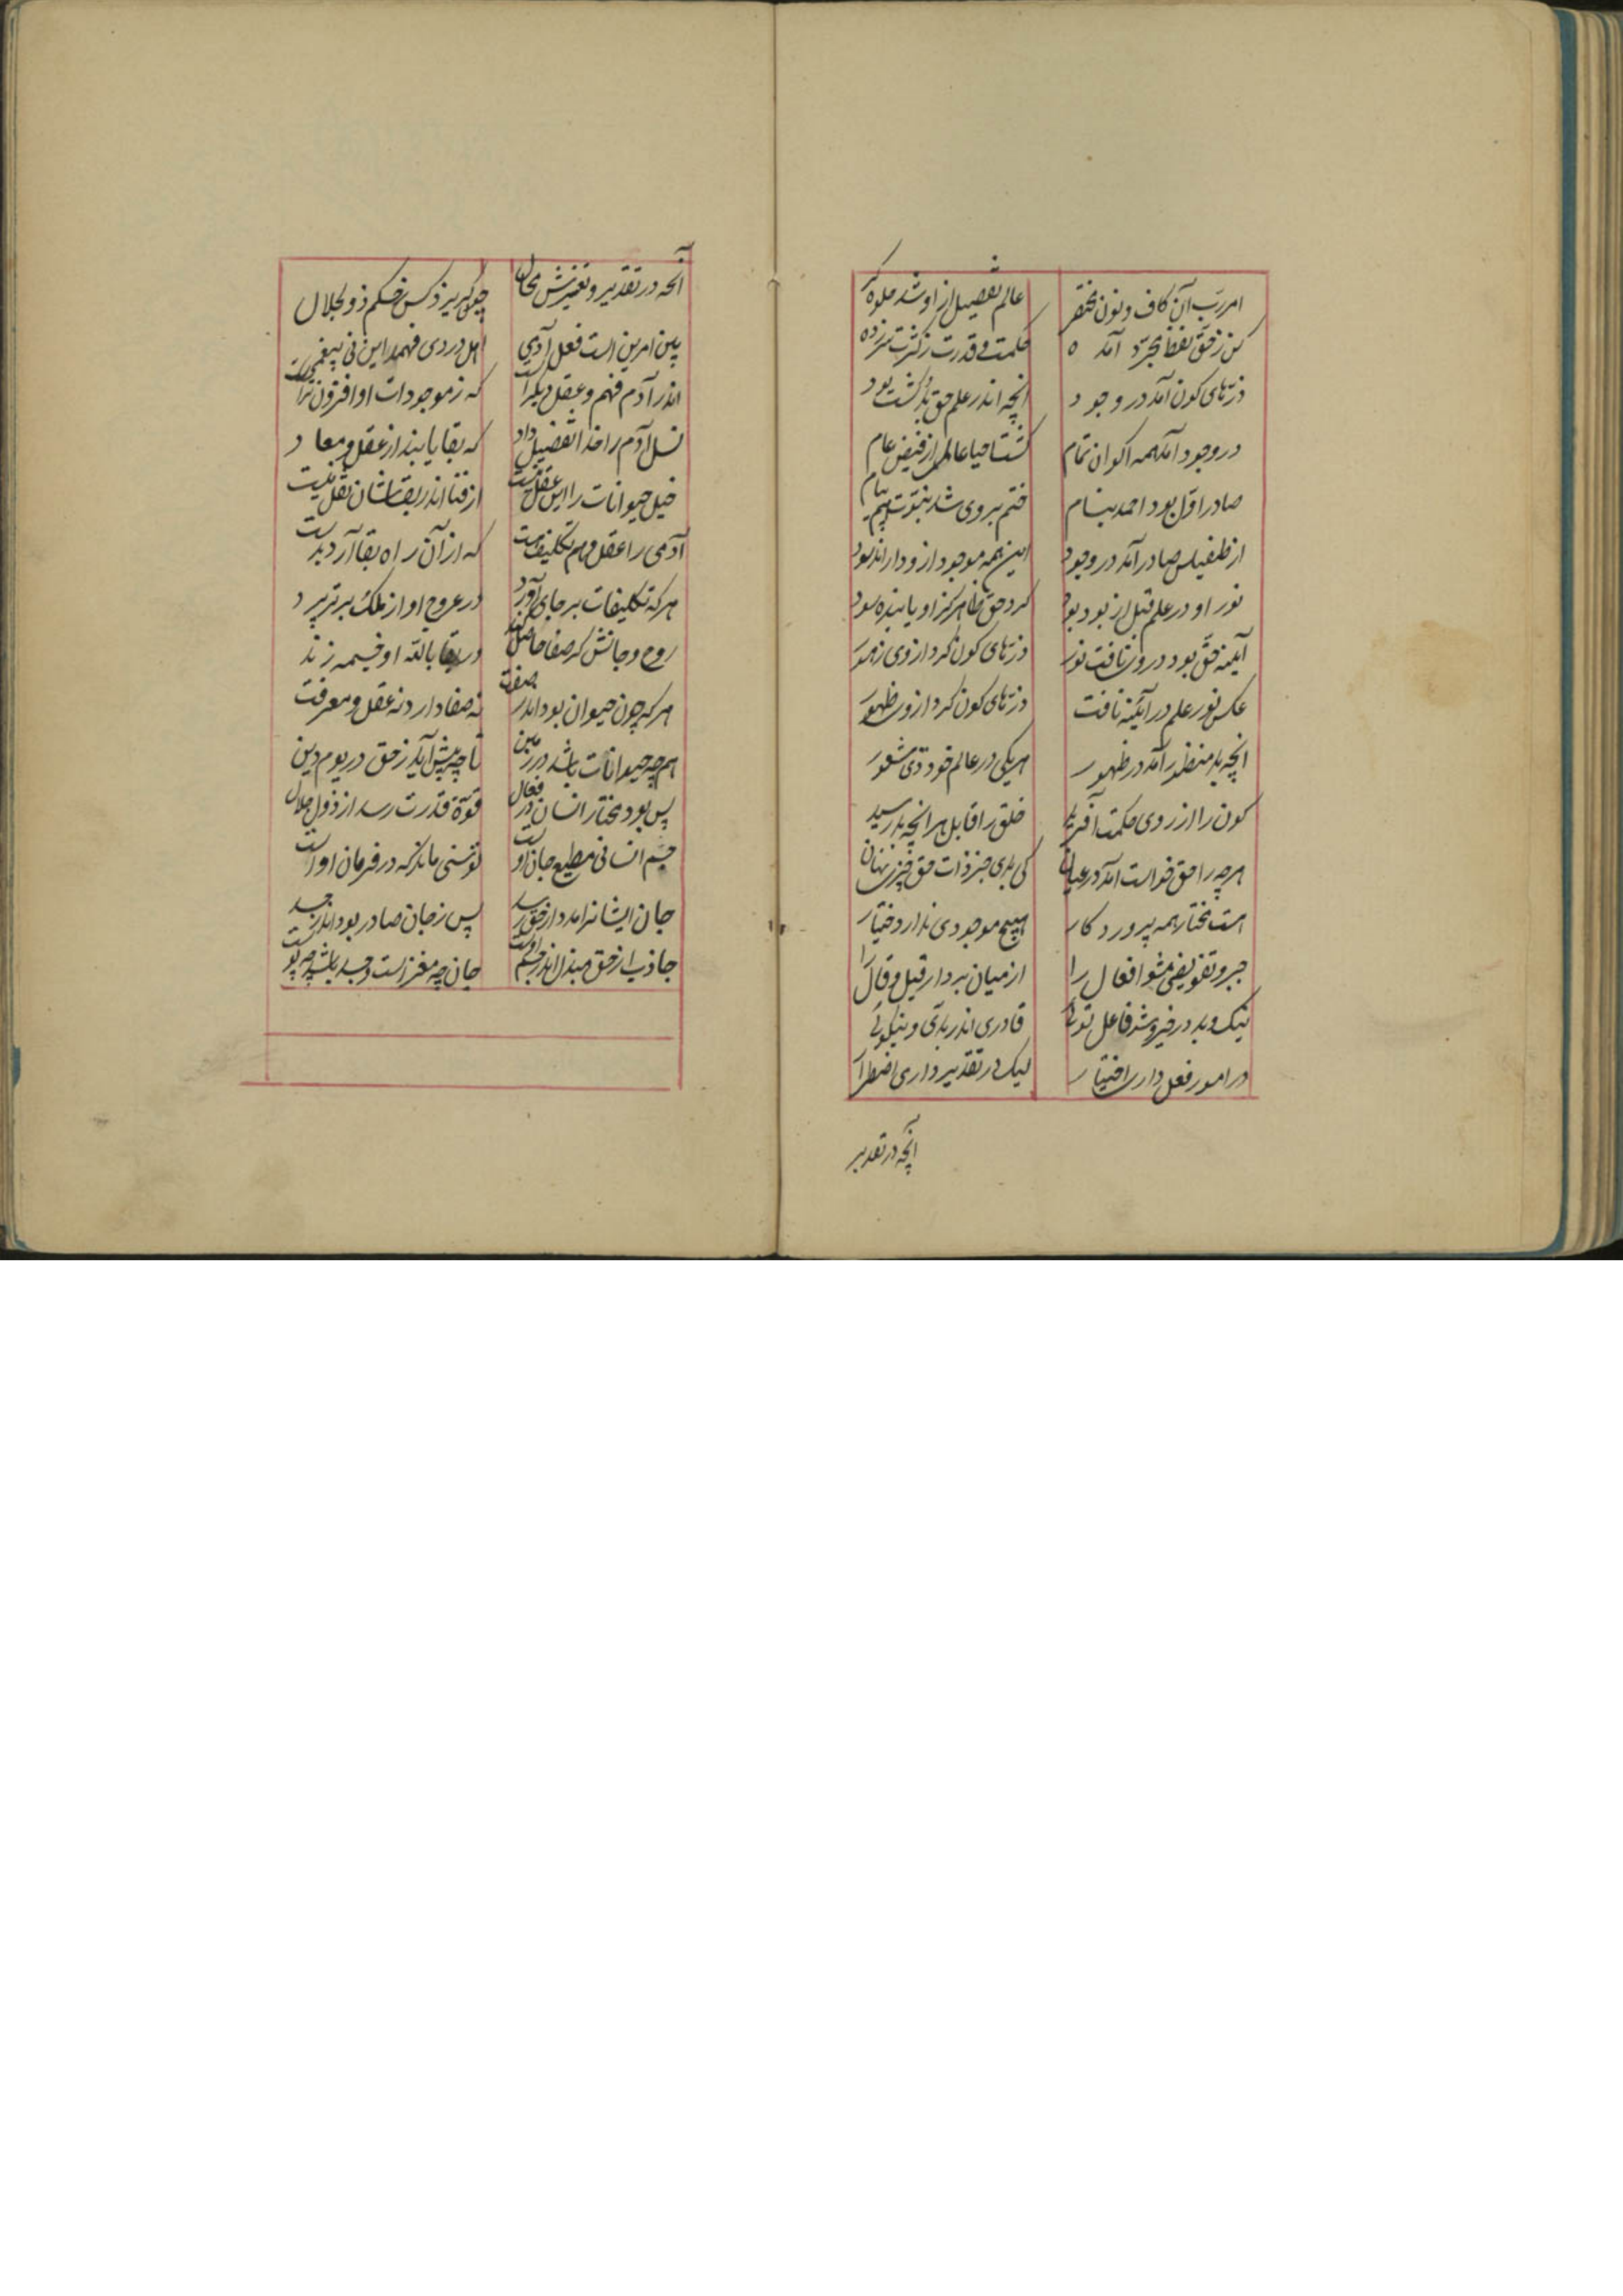 امر رب آن کاف و نون مختصر عالم تفصیل از او شد جلوه گر
کن ز حق لفظ مجرد آمده حکمت و قدرت ز کثرت سر زده
ذرّهای کون آمد در وجود انچه اندر علم حق بد گشت بود
در وجود آمد همه اکوان تمام گشت احیا عالمی از فیض عام
صادر اوّل بود احمد بنام ختم بر وی شد نبوّت
از طفیلش صادر آمد در وجود این همه موجود از و دارند بود
نور او در علم قبل از بود بود کرد حق ظاهر کز او یابنده سود
آینه حق بود در وی تافت نور ذرّهای کون کرد از وی
عکس نور علم در آئینه تافت ذرّهای کون کرد از وی ظهور
انچه بد منظور آمد در ظهور هر یکی در عالم خود ذی شعور
کون را از روی حکمت آفرید خلق را قابل بهر انچه بد رسید
هر چه را حق خواست آمد در عیان کی بدی جز ذات حق چیز نهان
هست مختار همه پروردکار هیچ موجودی ندارد اختیار
جبر و تفویضی مشو افعال را از میان بردار قیل و قال را
نیک و بد در خیر و شر فاعل توئی قادری اندر بدی و نیکوئی
در امور فعل داری اختیار لیک در تقدیر داری اضطرار
انچه در تقدیر
انچه در تقدیر و تغییرش محال چو کریزد کس ز حکم ذو الجلال
بین امرین است فعل آدمی اهل دردی فهمد این نی بیغمی
اندر آدم فهم و عقل دیگر است که ز موجودات او افزون تر است
نسل آدم را خدا تفضیل داد که بقا یابند از عقل و معاد
خیل حیوانات را این عقل نیست از فنا اندر بقاشان نقل نیست
آدمی را عقل و هم تکلیف هست که از آن راه بقا آرد بدست
هر که تکلیفات بر جای آورد در عروج او از ملک برتر پرد
روح و جانش کر صفا حاصل کند در بقا بالله او خیمه زند
هر که چون حیوان بود اندر صفت نه صفا دارد نه عقل و معرفت
هم چه حیوانات باشد در زمین تا چه پیش آید ز حق در یوم دین
پس بود مختار انسان در فعال قوّة قدرت رسد از ذو الجلال
جسم انسانی مطیع جان اوست توسنی ماند که در فرمان اوست
جان ایشانرا مدد از حق رسد پس ز جان صادر بود اندر جسد
جاذب از حق جان چه مغز است و جسد باشد چه پوست